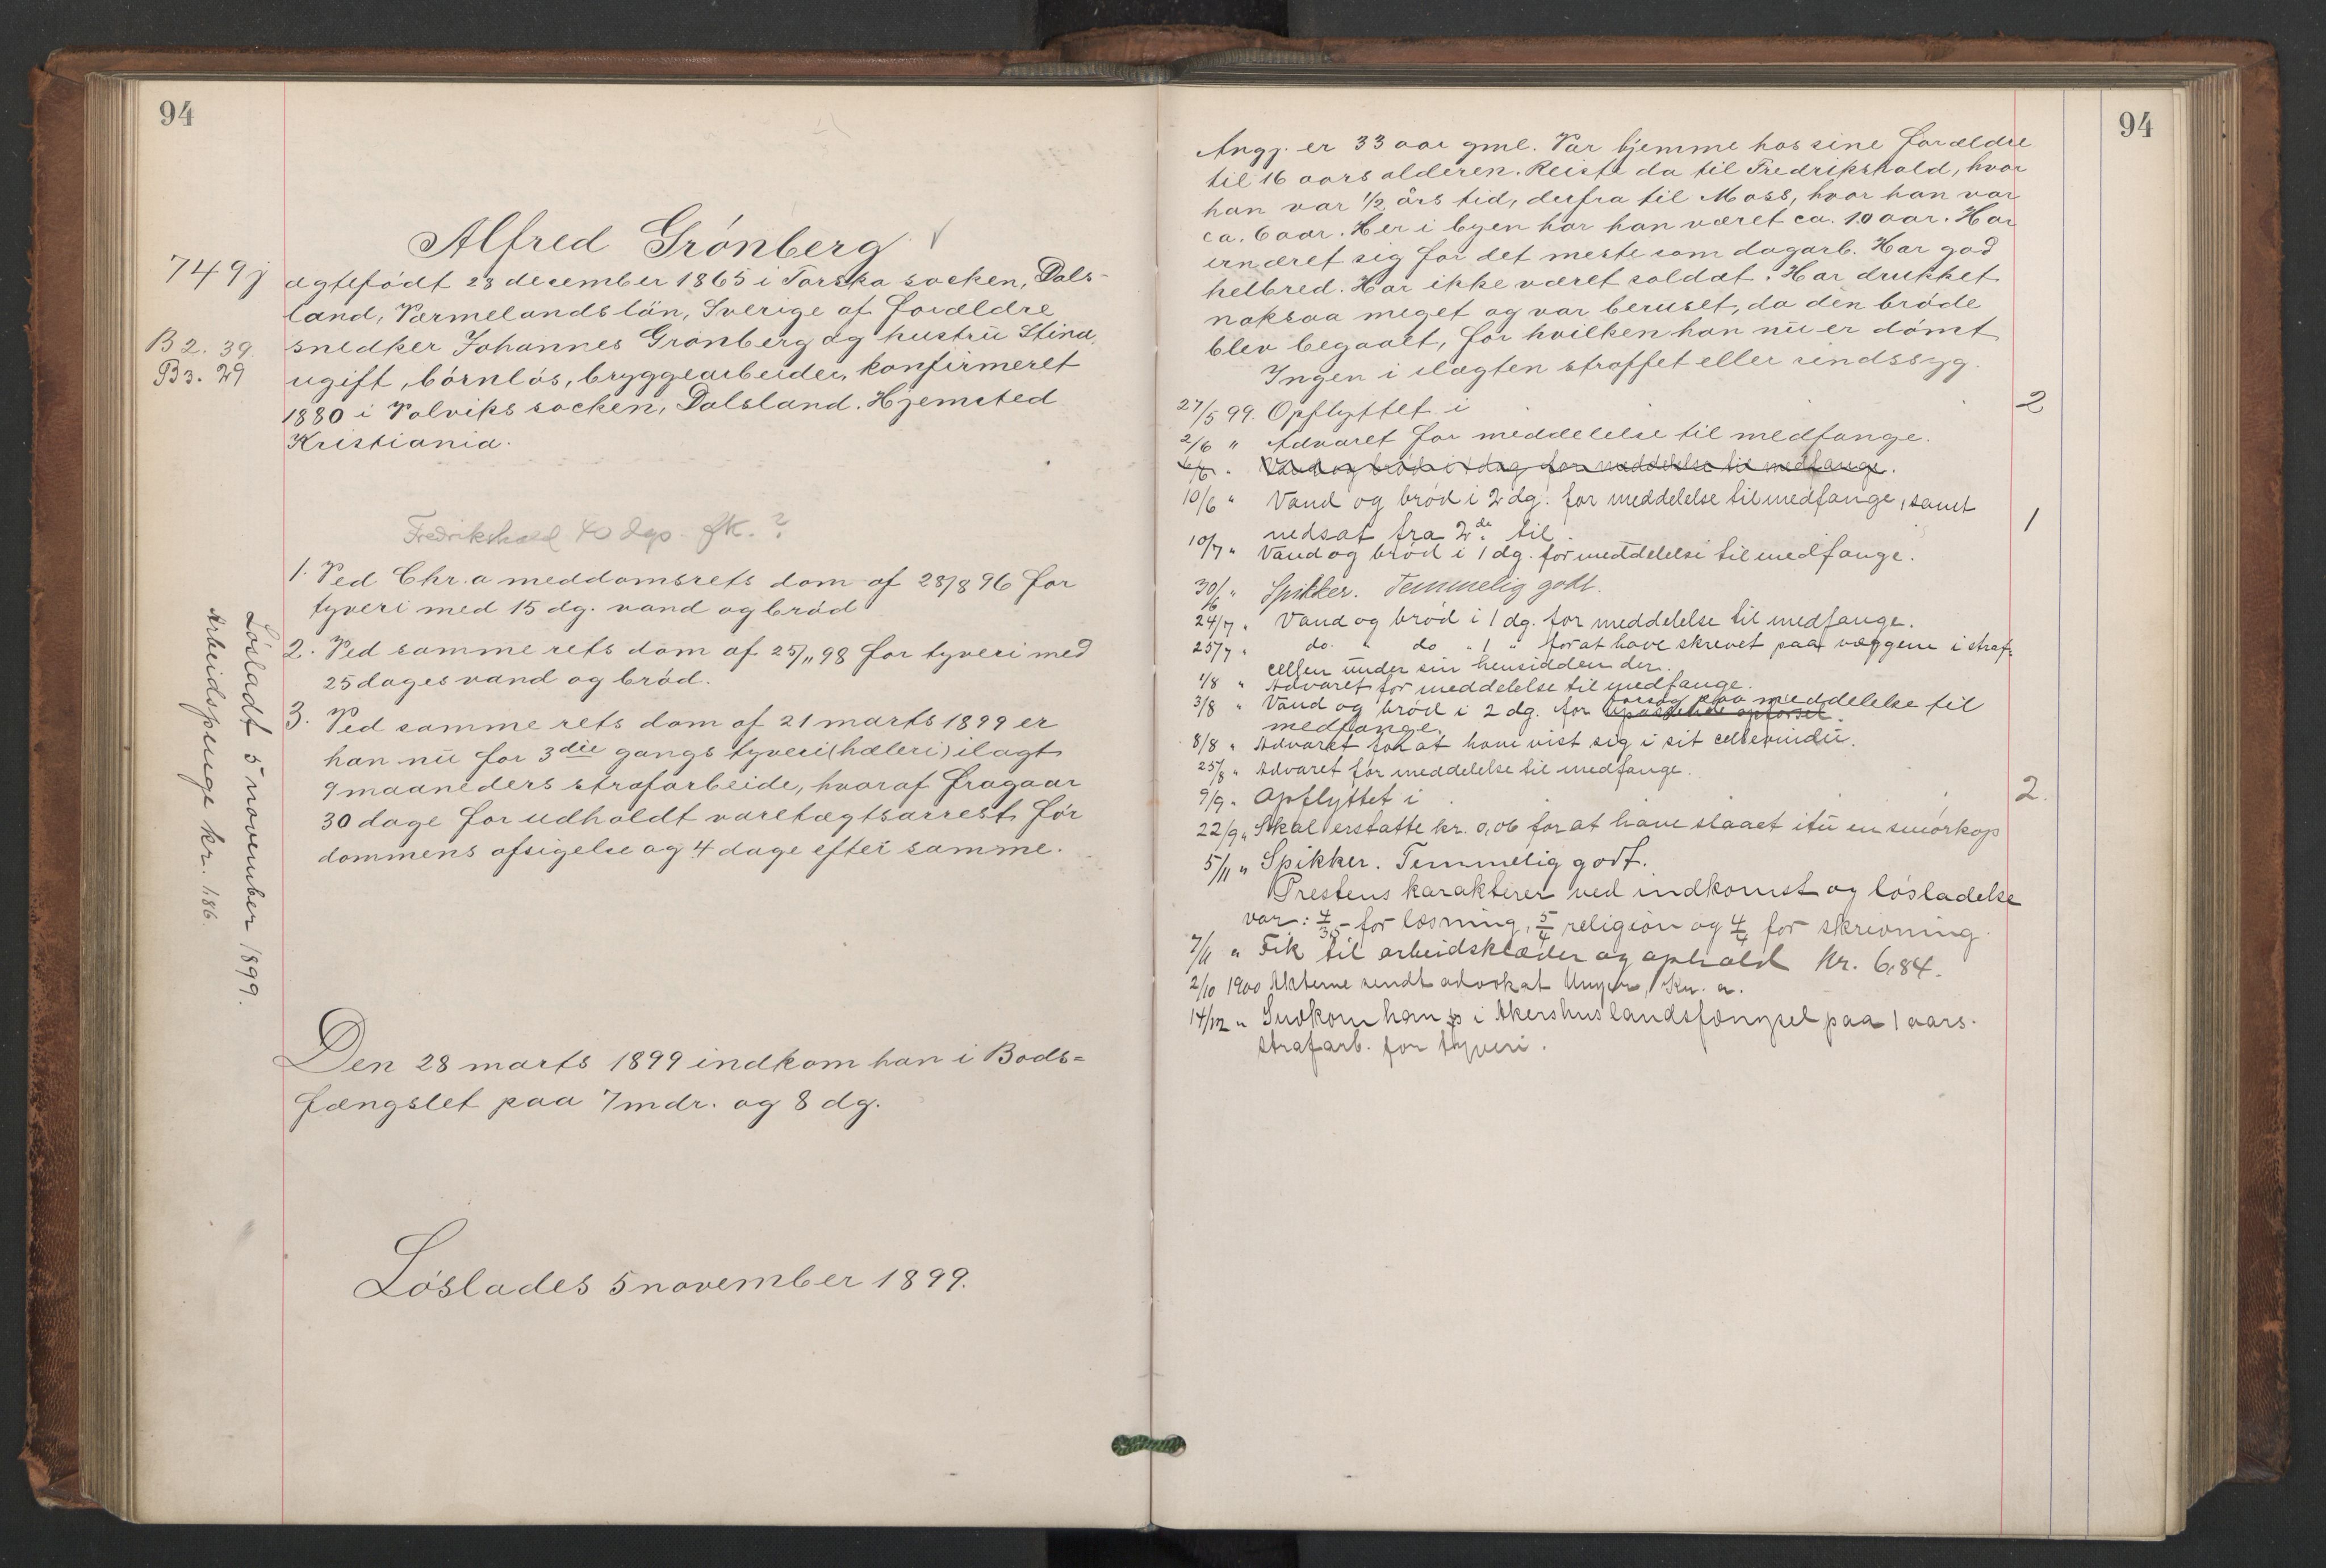 94
Alfred Grönberg
749j
ægtefödt 23 december 1865 i Torska socken, Dals-
land, Vermelands län, Sverige af forældre
B2. 39.
snedker Johannes Grönberg og hustru Stina,
B3. 29
ugift, börnlös, bryggearbeider, konfirmeret
1880 i Valviks socken, Dalsland. Hjemsted
Kristiania.
Fredrikshald 40 dgs. fk.?
1. Ved Chr.a meddomsrets dom af 28/8 96 for
tyveri med 15 dg. vand og bröd
2. Ved samme rets dom af 25/11 98 for tyveri med
25 dages vand og bröd.
3. Ved samme rets dom af 21 marts 1899 er
han nu for 3die gangs tyveri (hæleri) ilagt
9 maaneders strafarbeide, hvoraf fragaar
30 dage for udholdt varetægtsarrest för
dommens afsigelse og 4 dage efter samme.
Lösladt 5 november 1899.
Arbeidspenge kr. 1,86.
Den 28 marts 1899 indkom han i Bods-
fængslet paa 7 mdr. og 8 dg.
Löslades 5 november 1899.
94
Angj. er 33 aar gml. Var hjemme hos sine forældre
til 16 aars alderen. Reiste da til Fredrikshald, hvor
han var 1/2 års tid, derfra til Moss, hvor han var
ca. 6 aar. Her i byen har han været ca. 10 aar. Har
ernæret sig for det meste som dagarb. Har god
helbred. Har ikke været soldat. Har drukket
noksaa meget og var beruset, da den bröde
blev begaaet, for hvilken han nu er dömt
Ingen i slægten straffet eller sindssyg.
27/5 99. Opflyttet i 2
2/6 " Advaret for meddelelse til medfange.
4/6 . Vand og bröd i 1 dag for meddelelse til medfange.
10/6 " Vand og bröd i 2 dg. for meddelelse til medfange, samt
nedsat fra 2de til 1
10/7 " Vand og bröd i 1 dg. for meddelelse til medfange.
30/6 " Spikker. Temmelig godt.
24/7 " Vand og bröd i 1 dg. for meddelelse til medfange.
25/7 " do. " do " 1 " for at have skrevet paa væggene i straf-
cellen under sin hensidden der.
1/8 " Advaret for meddelelse til medfange.
3/8 " Vand og bröd i 2 dg. for upassende opförsel forsög paa meddelelse til
medfange.
8/8 " Advaret for at have vist sig i sit cellevindu.
25/8 " Advaret for meddelelse til medfange.
9/9 " Opflyttet i 2.
22/9 " Skal erstatte kr. 0,06 for at have slaaet itu en smörkop
5/11 " Spikker. Temmelig godt.
Prestens karakterer ved indkomst og lösladelse
var: 4/3,5 for læsning, 5/4 religion og 4/4 for skrivning.
7/11 " Fik til arbeidsklæder og ophold Kr. 6,84.
2/10 1900 Akterne sendt advokat Unger, Kr. a.
14/12 " Indkom han i Akershus landsfængsel paa 1 aars
strafarb. for tyveri.